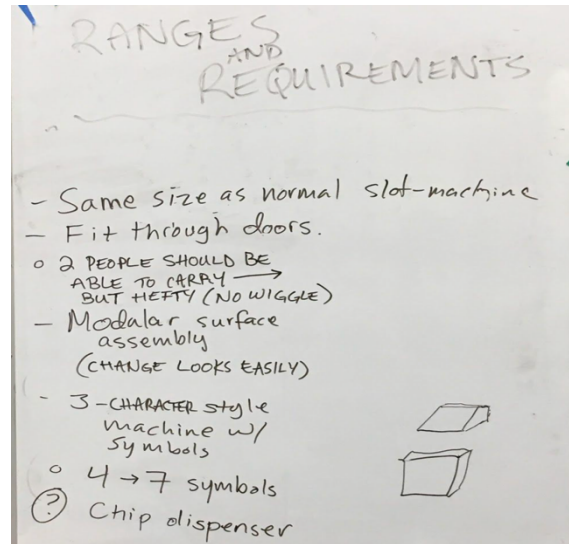 RANGES
AND
REQUIREMENTS
- Same size as normal slot-machine
- Fit through doors.
o 2 PEOPLE SHOULD BE
ABLE TO CARRY →
BUT HEFTY (NO WIGGLE)
- Modalar surface
assembly
(CHANGE LOOKS EASILY)
- 3-CHARACTER style
machine w/
symbols
o 4 → 7 symbols
? Chip dispenser